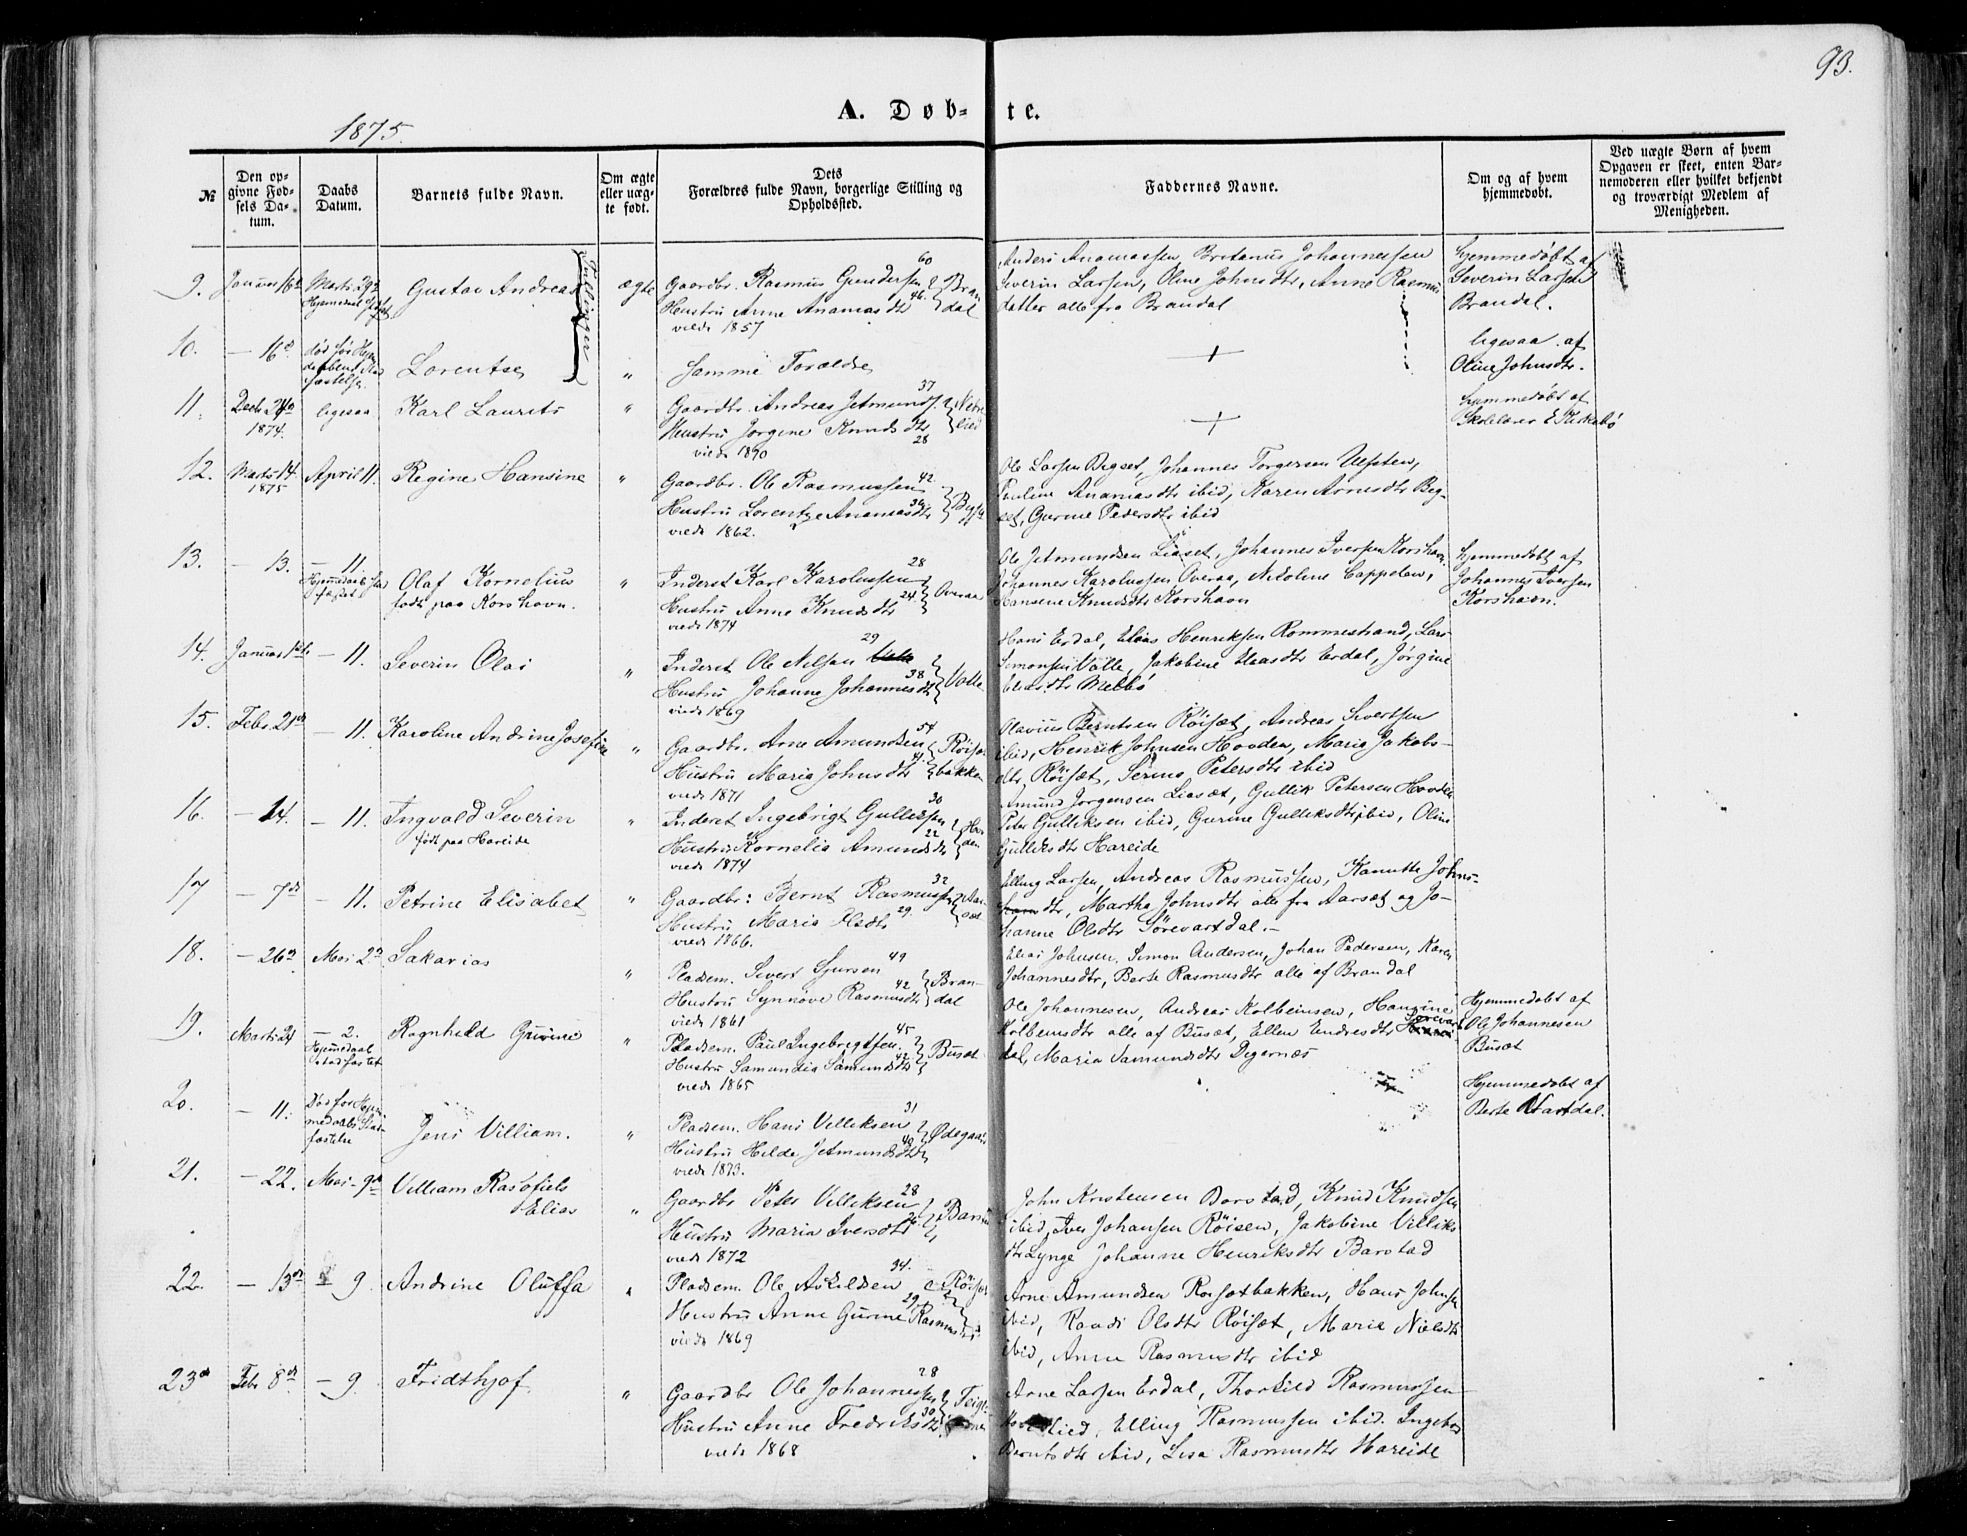 93.
1875.
A. Døb-te.
№
Den opgivne Fødsels Datum.
Daabs Datum.
Barnets fulde Navn.
Om ægte eller uægte født.
Dets Forældres fulde Navn, borgerlige Stilling og Opholdssted.
Faddernes Navne.
Om og af hvem hjemmedøbt.
Ved uægte Børn af hvem Opgaven er skeet, enten Barnemoderen eller hvilket bekjendt og troværdigt Medlem af Menigheden.
9. Januar 16de Marts 29de Gustav Andreas Tvillinger ægte
Gaardbr. Rasmus Gundersen 60
Hustru Anne Ananiasdtr 46. Brandal
viede 1857
Anders Ananiassen, Johannessen
Severin Larsen, Oline Johnsdtr, Anne Rasmus
datter alle fra Brandal
Hjemmedøbt af
Severin Larsen
Brandal.
10. — 16de død før Hjemmedaabens Stadfæstelse
Lorentse " Samme Forældre
+
ligesaa af
Oline Johnsdtr.
11. Decb. 1874. ligesaa Karl Laurits "
Gaardbr. Andreas Jetmunds. 37
Hustru Jørgine Knudsdtr 28
viede 1870
+
hjemmedøbt af
Skolelærer E Kirkebø
12. Marts 14 1875 April 11. Regine Hansine "
Gaardbr. Ole Rasmussen 42
Hustru Lorentze Ananiasdtr
viede 1862.
Ole Larsen Bigset, Johannes Torgersen Ulfsten,
Pauline Ananiasdtr ibid, Karen Arnesdtr Big-
set, Gurine Pedersdtr ibid
13. — 13. — 11. Hjemmedaab stadfæstet
Olaf Kornelius "
født paa Korshavn.
Inderst Karl Karolussen 28
Hustru Anne Knudsdtr 24 Overaa
viede 1874
Ole Jetmundsen Liaset, Johannes Iversen Korshavn
Johannes Karolussen Overaa, Nikoline Cappelen,
Hansine Knudsdtr Korshavn
hjemmedøbt af
Johannes Iversen
Korshavn.
14. Januar 1ste — 11. Severin Olai "
Inderst Ole Nilsen 29
Hustru Johanne Johannesdtr 38 Volle
viede 1869
Hans Erdal, Elias Henriksen Rommestrand, Lars
Simonsen Volle, Jakobine Eliasdtr Erdal, Jørgine
Eliasdtr Melbø
15. Febr. 21de — 11. Karoline Andrine Josefine "
Gaardbr. Arne Amundsen 54
Hustru Maria Johnsdtr 41. Röisetbakken
viede 1871
Olavius Berntsen Röisæt, Andreas Sivertsen
ibid, Henrik Johnsen Hovden, Maria Jakobs-
dtr Röisæt, Serine Petersdtr ibid
16. — 14. — 11. Ingvald Severin "
født paa Hareide
Inderst Ingebrigt Gulleksen 30
Hustru Kornelia Amundsdtr 22 Hovden
viede 1874
Amund Jørgensen Liasæt, Gullik Petersen Hovden
Peter Gulliksen ibid, Gurine Gulliksdtr ibid, Oline
Gulliksdtr Hareide
17 — 7de — 11. Petrine Elisabet "
Gaardbr: Bernt Rasmussen 32
Hustru Maria Olsdtr 29. Aarset
viede 1866.
Elling Larsen, Andreas Rasmussen, Kanutte Johns-
dtr, Martha Johnsdtr alle fra Aarset og Jo-
hanne Olsdtr Sørevartdal.-
18. — 26de Mai 2den Sakarias "
Pladsem. Sivert Sjursen 49
Hustru Synnøve Rasmusdtr 42 Brandal
viede 1861
Elias Johnsen, Simon Andersen, Johan Pedersen, Karen
Johannesdtr, Berte Rasmusdtr alle af Brandal
19. Marts 24 — 2. Hjemmedaab stadfæstet
Ragnhild Gurine "
Pladsem. Paul Ingebrigtsen. 45
Hustru Samundia Samundsdtr 42 Busæt
viede 1865
Ole Johannesen, Andreas Kolbeinsen, Hansine
Kolbeinsdtr alle af Busæt, Ellen Endresdtr Sørevart-
dal, Maria Samundsdtr Digernæs
Hjemmedøbt af
Ole Johannesen
Busæt
20. — 11. Død før Hjemmedaabs Stadfæstelse
Jens Villiam. "
Pladsem. Hans Villiksen 31
Hustru Hilde Jetmundsdtr 40 Ødegaard
viede 1873.
Hjemmedøbt af
Berte Vartdal.
21. — 22. Mai 9de Villiam Elias "
Gaardbr Peter Villiksen 28
Hustru Maria Iversdtr 26 Barstad
viede 1872
John Kristensen Barstad, Knud Knudsen
ibid, Iver Johansen Röisen, Jakobine Villiks
dtr Lynge Johanne Henriksdtr Barstad
22. — 13de 9. Andrine Oluffa "
Pladsem. Ole Askildsen 34.
Hustru Anne Gurine Rasmusdtr. 29 Röiset
viede 1869
Arne Amundsen Røisetbakken, Hans Johnsen
ibid, Randi Olsdtr Röisæt, Marie Nielsdtr
ibid, Anne Rasmusdtr ibid
23de Febr 8de — 9. Fridthjof "
Gaardbr Ole Johannessen 28
Hustru Anne Fredriksdtr 30
viede 1868
Arne Larsen Erdal, Thorkild Rasmussen
lied, Elling Rasmussen ibid. Ingebor
Berntsdtr ibid, Lisa Rasmusdtr Hareide